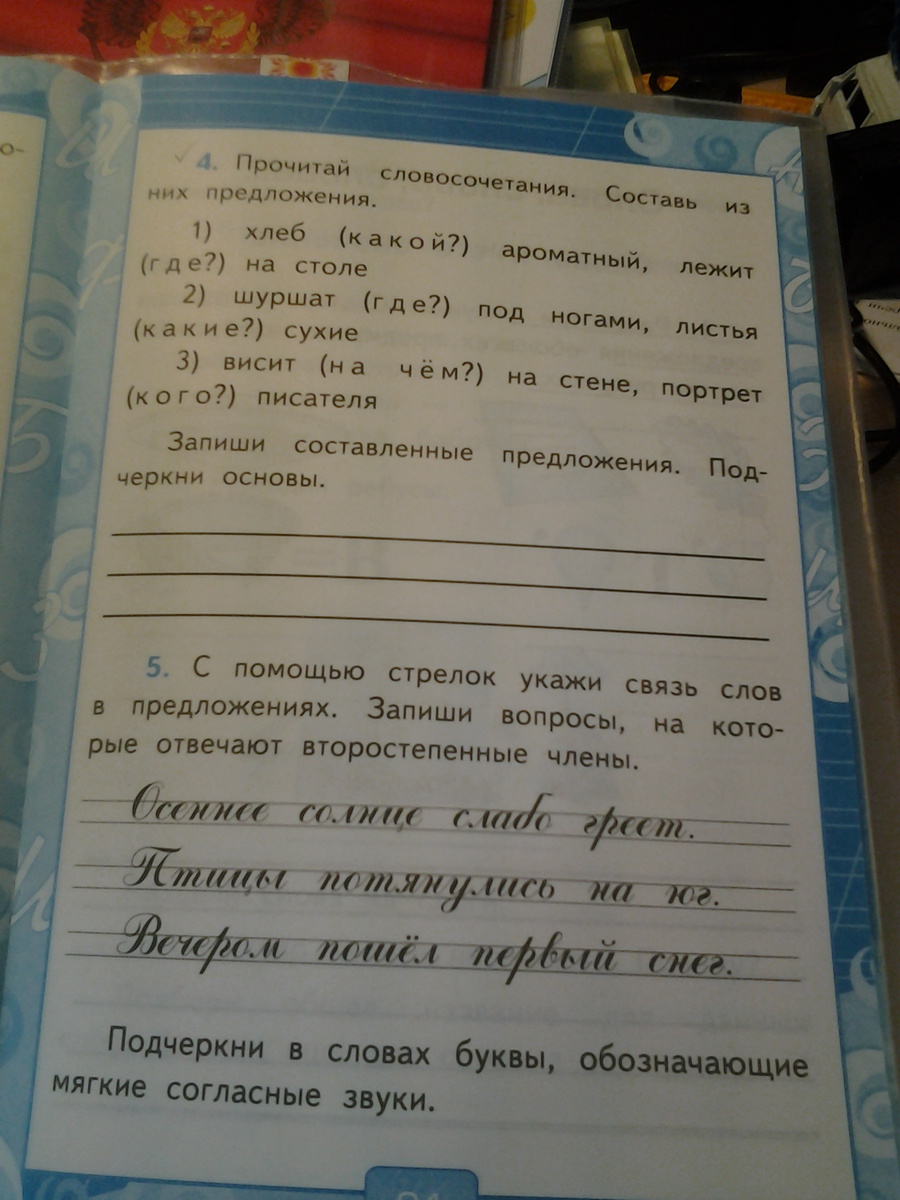 о-
4. Прочитай словосочетания. Составь из
них предложения.
1) хлеб (какой?) ароматный, лежит
(где?) на столе
2) шуршат (где?) под ногами, листья
(какие?) сухие
3) висит (на чём?) на стене, портрет
(кого?) писателя
Запиши составленные предложения. Под-
черкни основы.
5. С помощью стрелок укажи связь слов
в предложениях. Запиши вопросы, на кото-
рые отвечают второстепенные члены.
Осеннее солнце слабо греет.
Птицы потянулись на юг.
Вечером пошёл первый снег.
Подчеркни в словах буквы, обозначающие
мягкие согласные звуки.